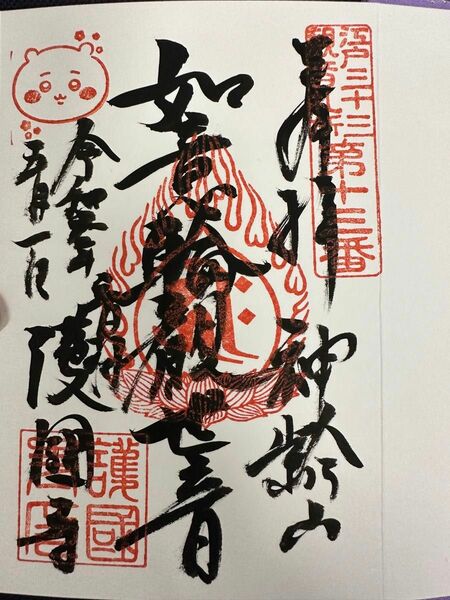 江戸三十三
観音札所
第十三番
奉拝
神齢山
如意輪観世音
令和
五月一日
音羽
護國寺
護國